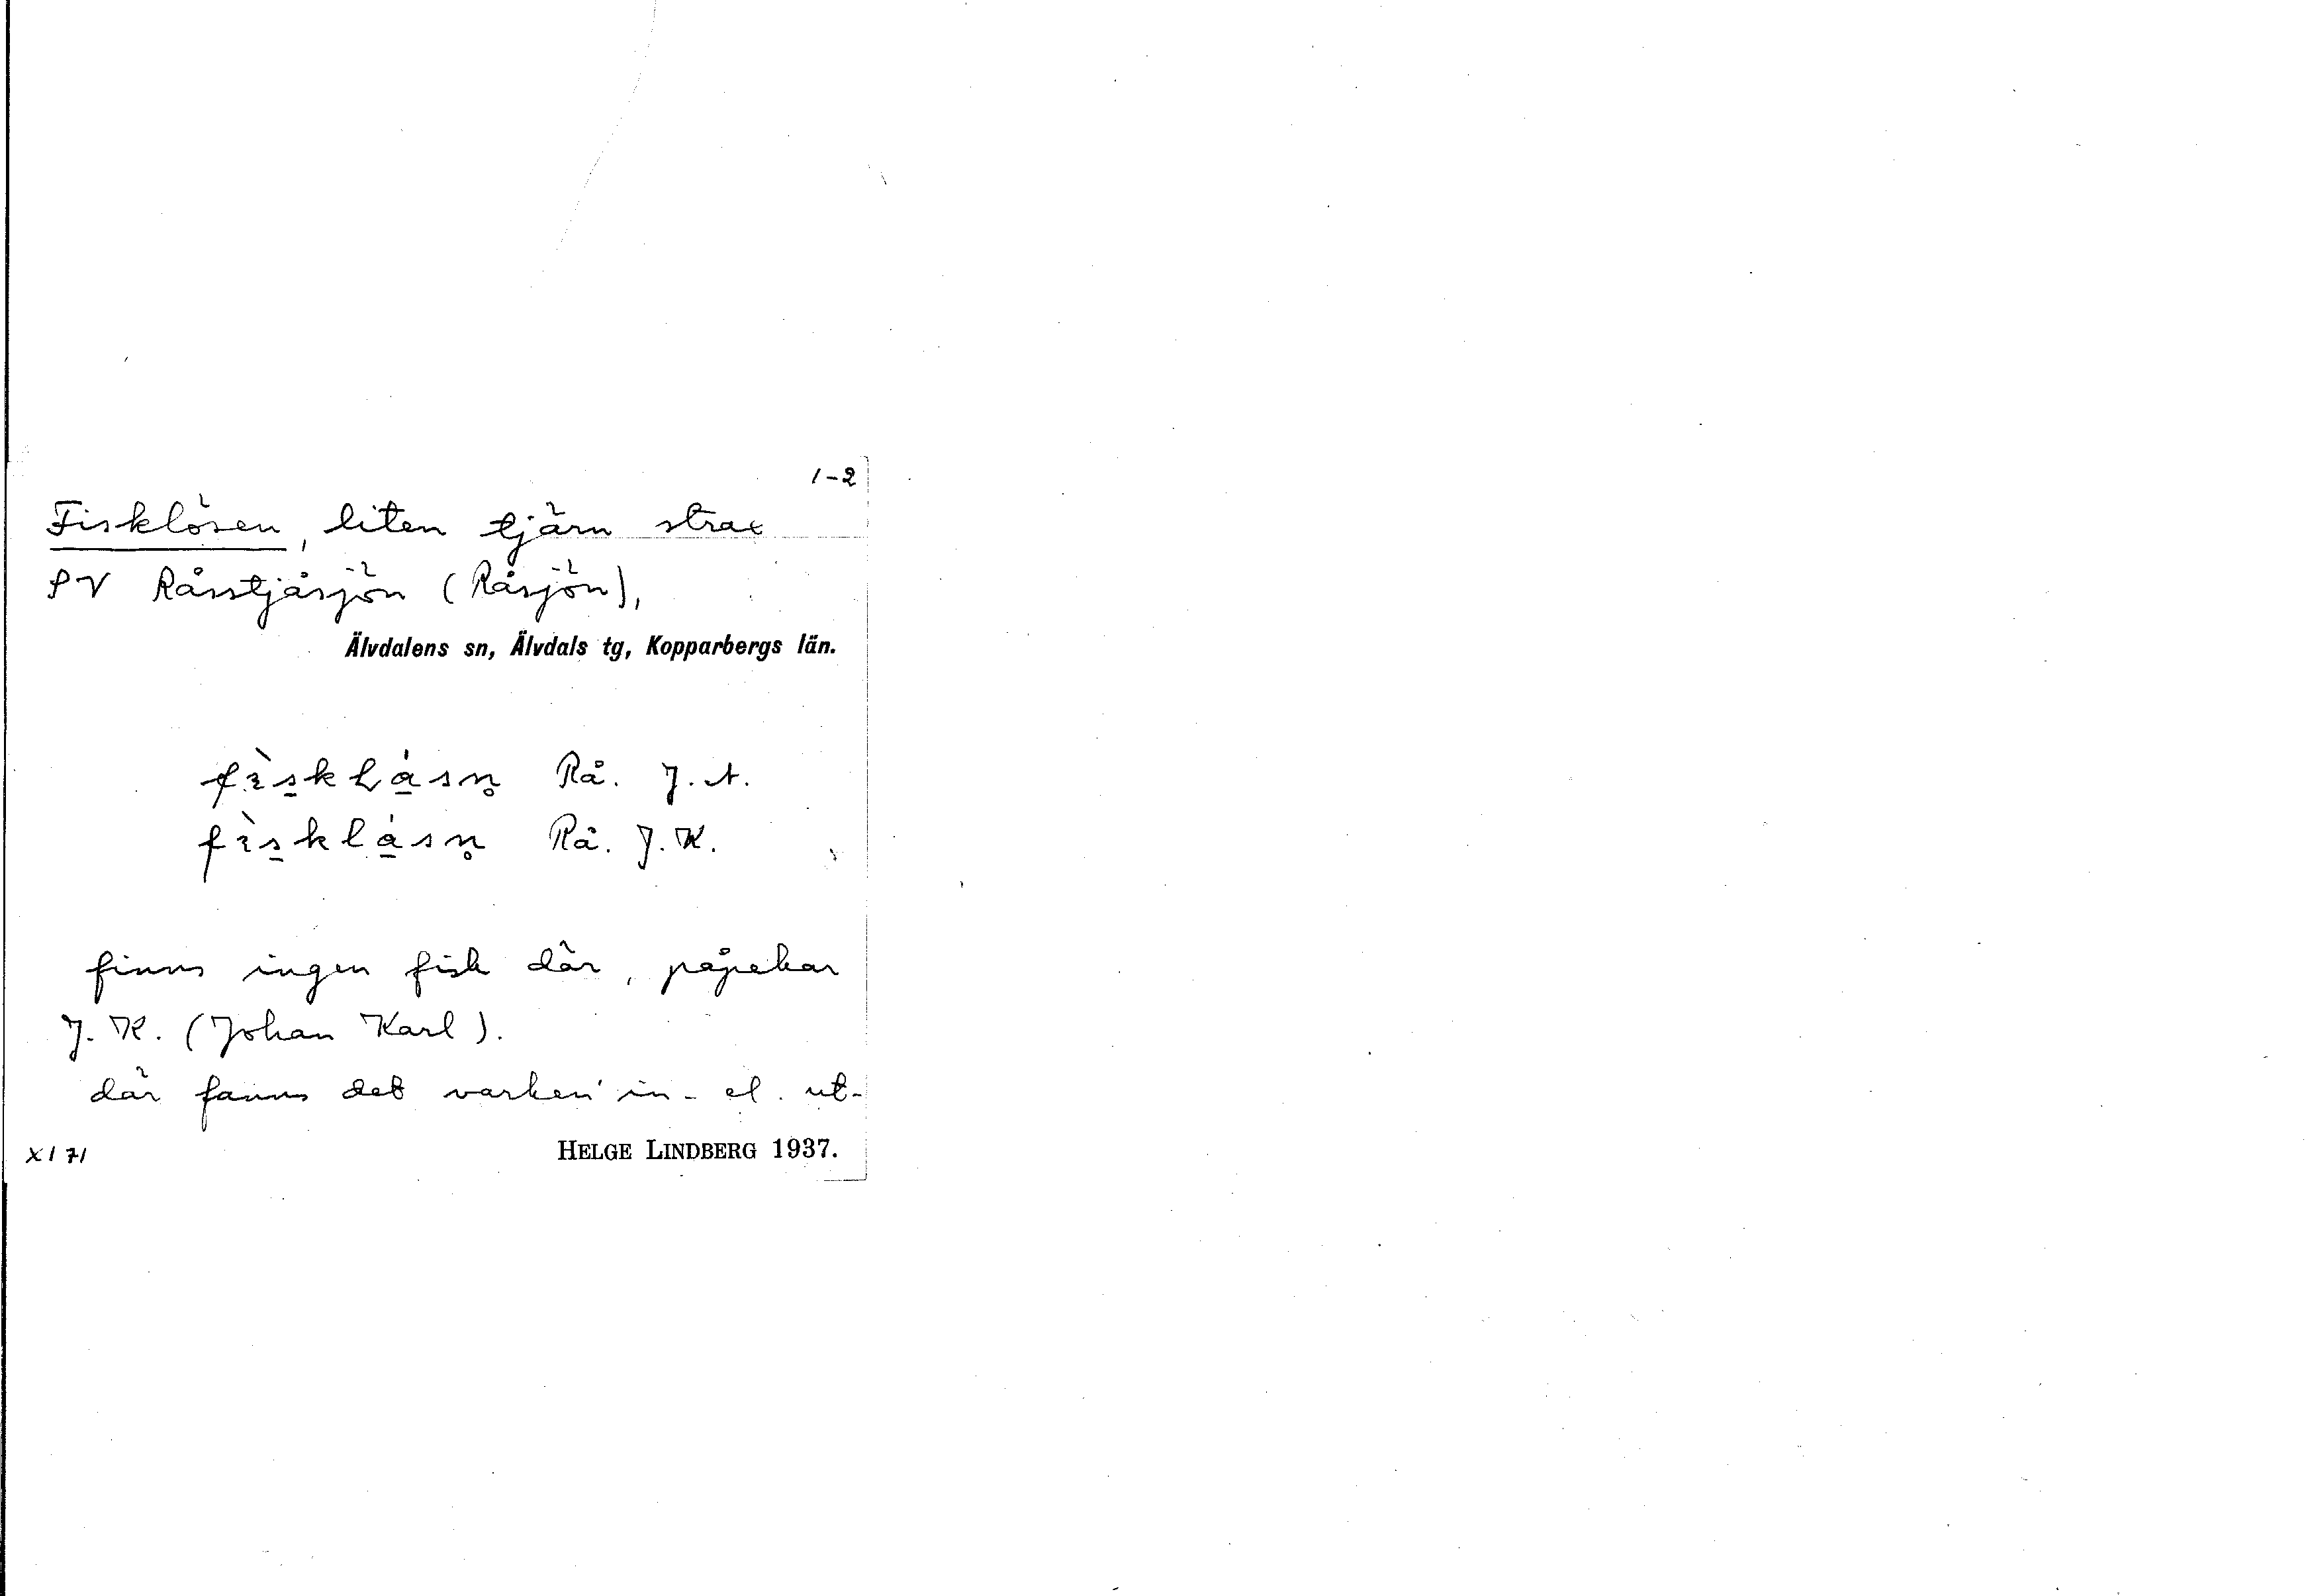 1-2
Fisklösen, liten tjärn strax
SV Råsstjåsjön (Råsjön),
Älvdalens sn, Älvdals tg, Kopparbergs län.
Rå. J. A.
Rå. J. K.
finns ingen fisk där, påpekar
J. K. (Johan Karl).
där fanns det varken in- el. ut-
XI 71 HELGE LINDBERG 1937.